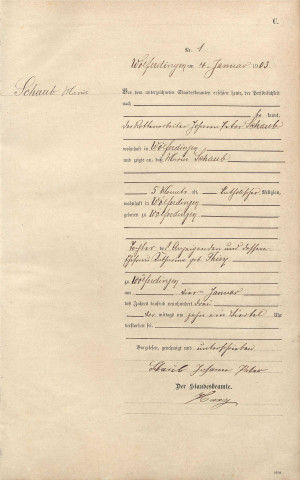 C.
Nr. 1
Wölferdingen am 4. Januar 1903
Schaub Maria
Vor dem unterzeichneten Standesbeamten erschien heute, der Persönlichkeit
nach
kannt,
der Rottenarbeiter Johann Peter Schaub
wohnhaft in Wölferdingen
und zeigte an, daß Maria Schaub
5 Monate katholischer Religion,
wohnhaft in Wölferdingen
geboren zu Wölferdingen
Tochter des Anzeigenden und dessen
Ehefrau Katharina geb. Thiry
zu Wölferdingen
am vier Januar
des Jahres tausend neunhundert drei
mittags um zehn ein viertel Uhr
verstorben sei.
Vorgelesen, genehmigt und unterschrieben
Schaub Johann Peter
Der Standesbeamte.